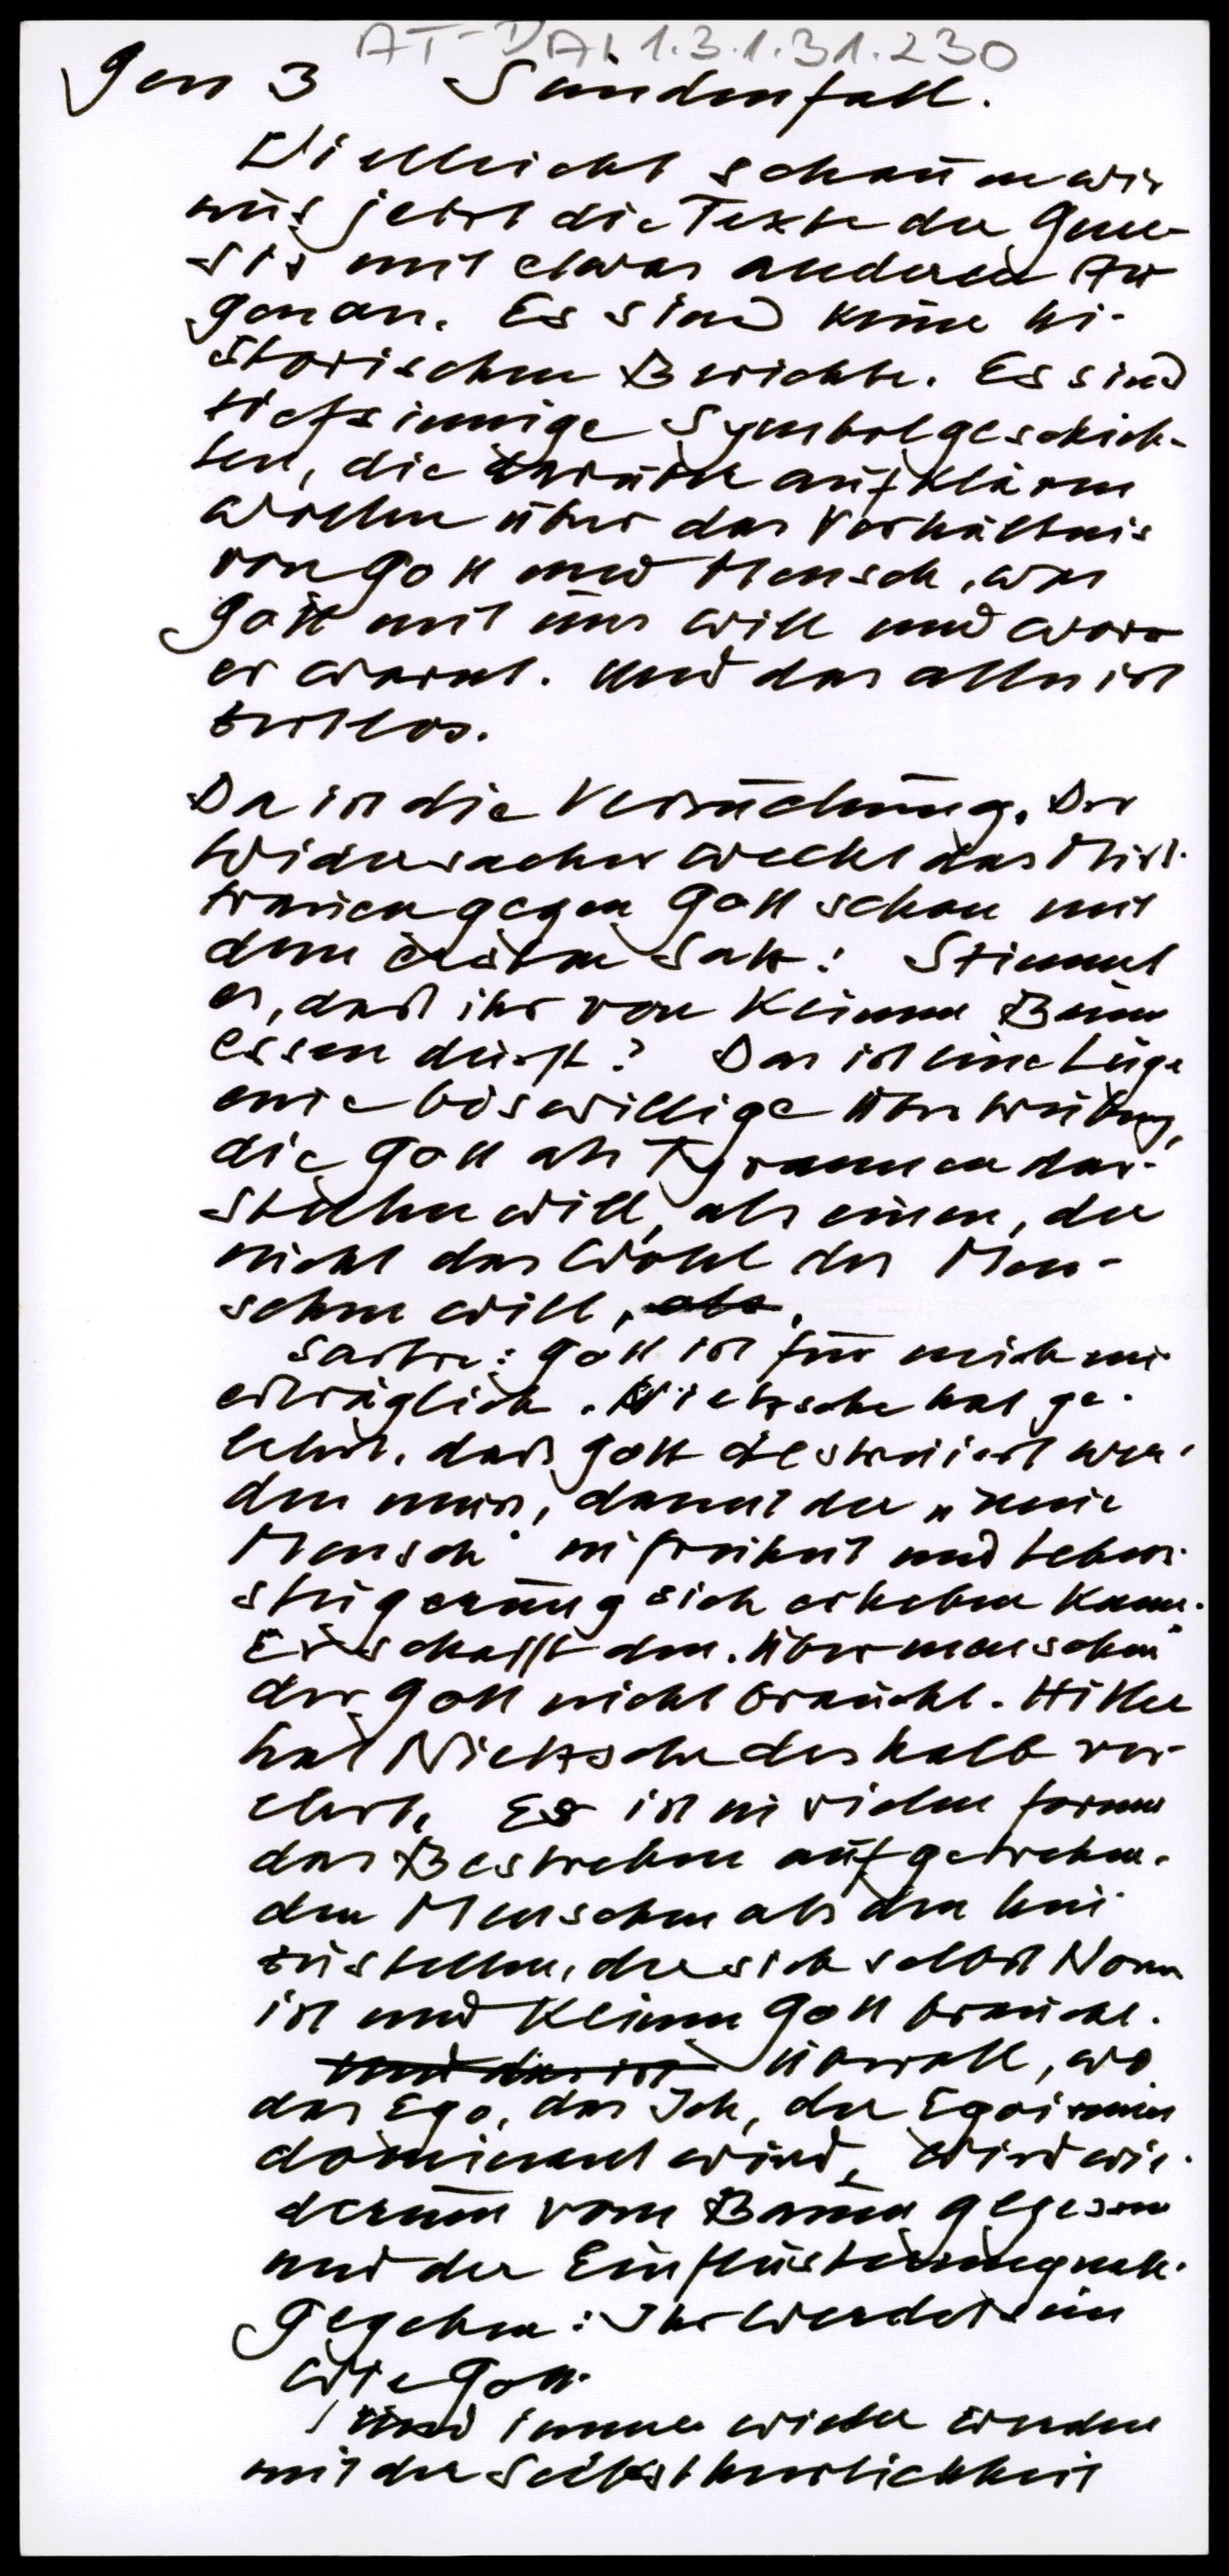 AT-DAI 1.3.1.31.230
Gen 3 Sündenfall.
Vielleicht schauen wir
uns jetzt die Texte der Gene-
sis mit etwas anderen Au
gen an. Es sind keine hi-
storischen Berichte. Es sind
tiefsinnige Symbolgeschich-
ten, die darüber aufklären
wollen über das Verhältnis
von Gott und Mensch, was
Gott mit uns will und wovor
er warnt. Und das alles ist
zeitlos.
Da ist die Versuchung. Der
Widersacher weckt das Miß-
trauen gegen Gott schon mit
dem ersten Satz: Stimmt
es, daß ihr von keinem Baum
essen dürft? Das ist eine Lüge
eine böswillige Übertreibung,
die Gott als Tyrannen dar-
stellen will, als einen, der
nicht das Wohl des Men-
schen will, als,
Sartre: Gott ist für mich un
erträglich. Nietzsche hat ge-
lehrt, daß Gott destruiert wer-
den muss, damit der "neue
Mensch" in Freiheit und Lebens-
steigerung sich erheben kann.
Er schafft den "Übermenschen"
der Gott nicht braucht. Hitler
hat Nietzsche deshalb ver-
ehrt. Es ist in vielen Formen
das Bestreben aufgetreten,
den Menschen als den hin
zustellen, der sich selbst Norm
ist und keinen Gott braucht.
und das ist Überall, wo
das Ego, das Ich, der Egoismus
dominant wird, wird wie-
derum vom Baum gegessen
und der Einflüsterung nach-
gegeben: Ihr werdet sein
wie Gott.
Und immer wieder werden
mit der Selbstherrlichkeit